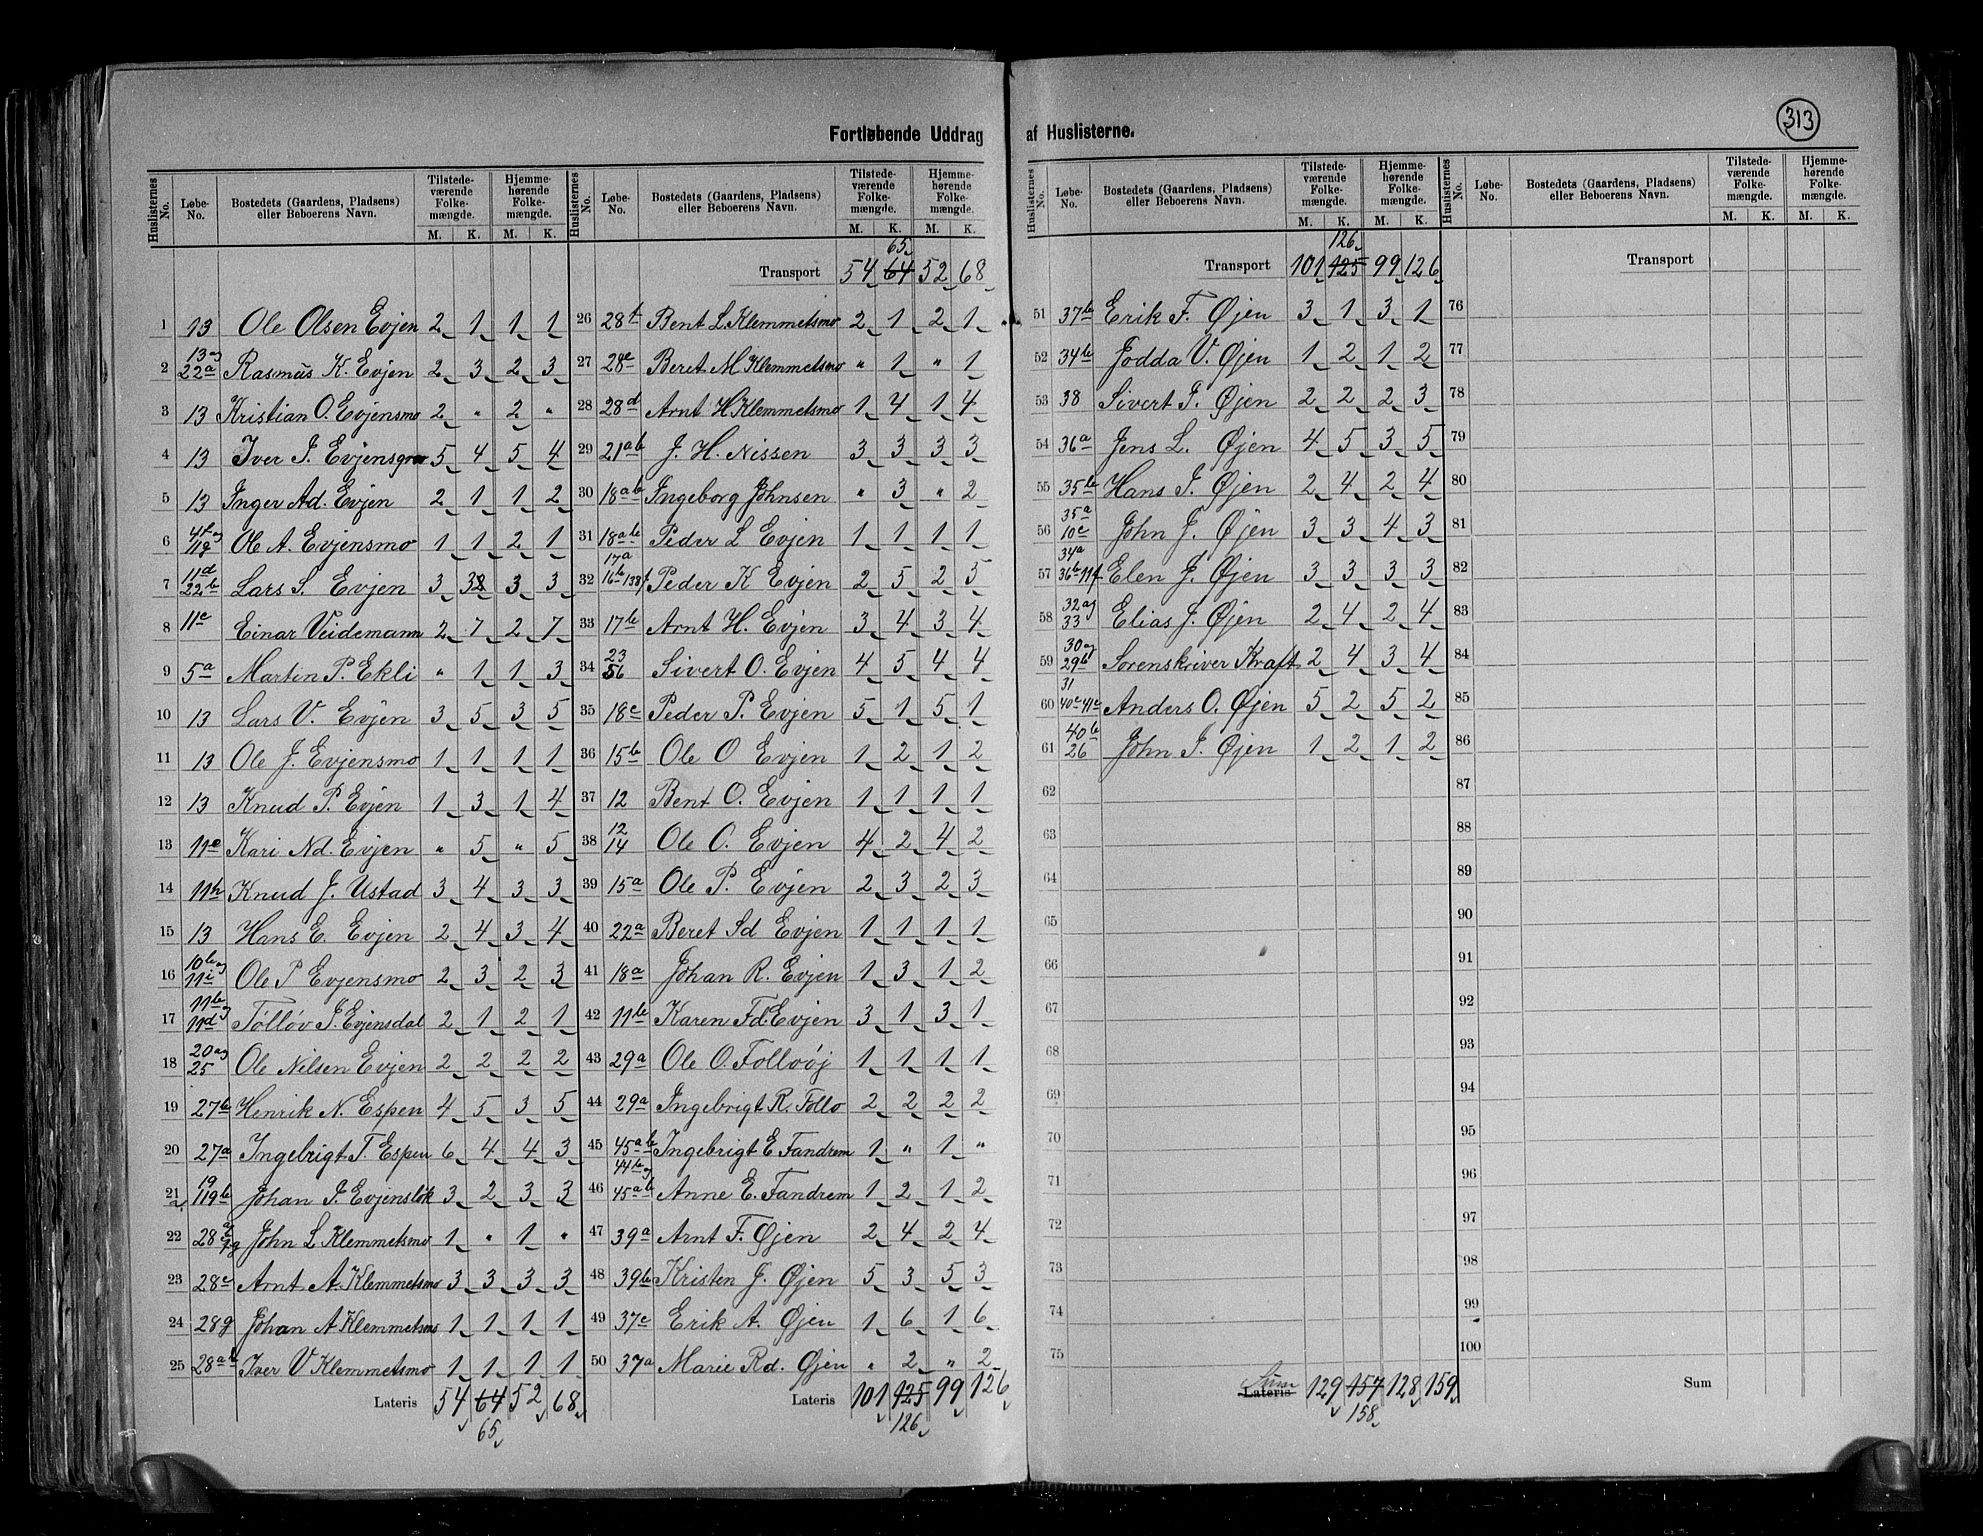 Fortløbende Uddrag af Huslisterne.
313
Huslisternes No. | Løbe-No. | Bostedets (Gaardens, Pladsens) eller Beboerens Navn. | Tilstedeværende Folkemængde. M. K. | Hjemmehørende Folkemængde. M. K.
1 13 Ole Olsen Evjen 2 1 1 1
2 13 og 22a Rasmus K. Evjen 2 3 2 3
3 13 Kristian O. Evjensmo 2 " 2 "
4 13 Iver J. 5 4 5 4
5 13 Inger Ad. Evjen 2 1 1 2
6 Ole A. Evjensmo 1 1 2 1
7 11d 22b Lars S. Evjen 3 3 3 3
8 11c Einar Veidemann 2 7 2 7
9 5a Martin P. Ekli " 1 1 3
10 13 Lars V. Evjen 3 5 3 5
11 13 Ole J. Evjensmo 1 1 1 1
12 13 Knud P. Evjen 1 3 1 4
13 11e Kari Nd. Evjen " 5 " 5
14 11h Knud J. Ustad 3 4 3 3
15 13 Hans E. Evjen 2 4 3 4
16 10b og 11i Ole P Evjensmo 2 3 2 3
17 11b og 11d Tolløv J. Evjensdal 2 1 2 1
18 20 og 25 Ole Nilsen Evjen 2 2 2 2
19 27b Henrik N. Espen 4 5 3 5
20 27a Ingebrigt T. Espen 6 4 4 3
21 19 119b Johan J. Evjensløk 3 2 3 3
22 28 John L Klemmetsmo 1 " 1 "
23 28c Arnt A. Klemmetsmo 3 3 3 3
24 28g Johan A Klemmetsmo 1 1 1 1
25 28ab Iver V Klemmetsmo 1 1 1 1
Lateris 54 64 52 68
65
Huslisternes No. | Løbe-No. | Bostedets (Gaardens, Pladsens) eller Beboerens Navn. | Tilstedeværende Folkemængde. M. K. | Hjemmehørende Folkemængde. M. K.
65
Transport 54 64 52 68
26 28f Bent L. Klemmetsmo 2 1 2 1
27 28e Beret M Klemmetsmo " 1 " 1
28 28d Arnt H Klemmetsmo 1 4 1 4
29 21ab J. H. Nissen 3 3 3 3
30 18ab Ingeborg Johnsen " 3 " 2
31 18ab Peder L Evjen 1 1 1 1
32 17a 16b Peder K Evjen 2 5 2 5
33 17b Arnt H. Evjen 3 4 3 4
34 23 56 Sivert O. Evjen 4 5 4 4
35 18c Peder P. Evjen 5 1 5 1
36 15b Ole O Evjen 1 2 1 2
37 12 Bent O. Evjen 1 1 1 1
38 12 14 Ole O. Evjen 4 2 4 2
39 15a Ole P. Evjen 2 3 2 3
40 22a Beret Sd Evjen 1 1 1 1
41 18a Johan R. Evjen 1 3 1 2
42 11b Karen Fd. Evjen 3 1 3 1
43 29a Ole O. 1 1 1 1
44 29a Ingebrigt R. Follo 2 2 2 2
45 45ab Ingebrigt E Fandrem 1 " 1 "
46 44b og 45ab Anne E. Fandrem 1 2 1 2
47 39a Arnt F. Øjen 2 4 2 4
48 39b Kristen J. Øjen 5 3 5 3
49 37c Erik A. Øjen 1 6 1 6
50 37a Marie Rd. Øjen " 2 " 2
Lateris 101 125 99 126
126
Huslisternes No. | Løbe-No. | Bostedets (Gaardens, Pladsens) eller Beboerens Navn. | Tilstedeværende Folkemængde. M. K. | Hjemmehørende Folkemængde. M. K.
126
Transport 101 125 99 126
51 37b Erik F. Øjen 3 1 3 1
52 34b Jodda V. Øjen 1 2 1 2
53 38 Sivert P. Øjen 2 2 2 3
54 36a Jens L. Øjen 4 5 3 5
55 35b Hans J. Øjen 2 4 2 4
56 35a 10c John J. Øjen 3 3 4 3
57 34a 36b 11f Elen J. Øjen 3 3 3 3
58 32 og 33 Elias J. Øjen 2 4 2 4
59 30 og 29b Sorenskriver Kraft 2 4 3 4
60 31 40c 41c Anders O. Øjen 5 2 5 2
61 40b 26 John J. Øjen 1 2 1 2
62
63
64
65
66
67
68
69
70
71
72
73
74
75
Lateris Sum 129 157 128 159
158
Huslisternes No. | Løbe-No. | Bostedets (Gaardens, Pladsens) eller Beboerens Navn. | Tilstedeværende Folkemængde. M. K. | Hjemmehørende Folkemængde. M. K.
Transport
76
77
78
79
80
81
82
83
84
85
86
87
88
89
90
91
92
93
94
95
96
97
98
99
100
Sum